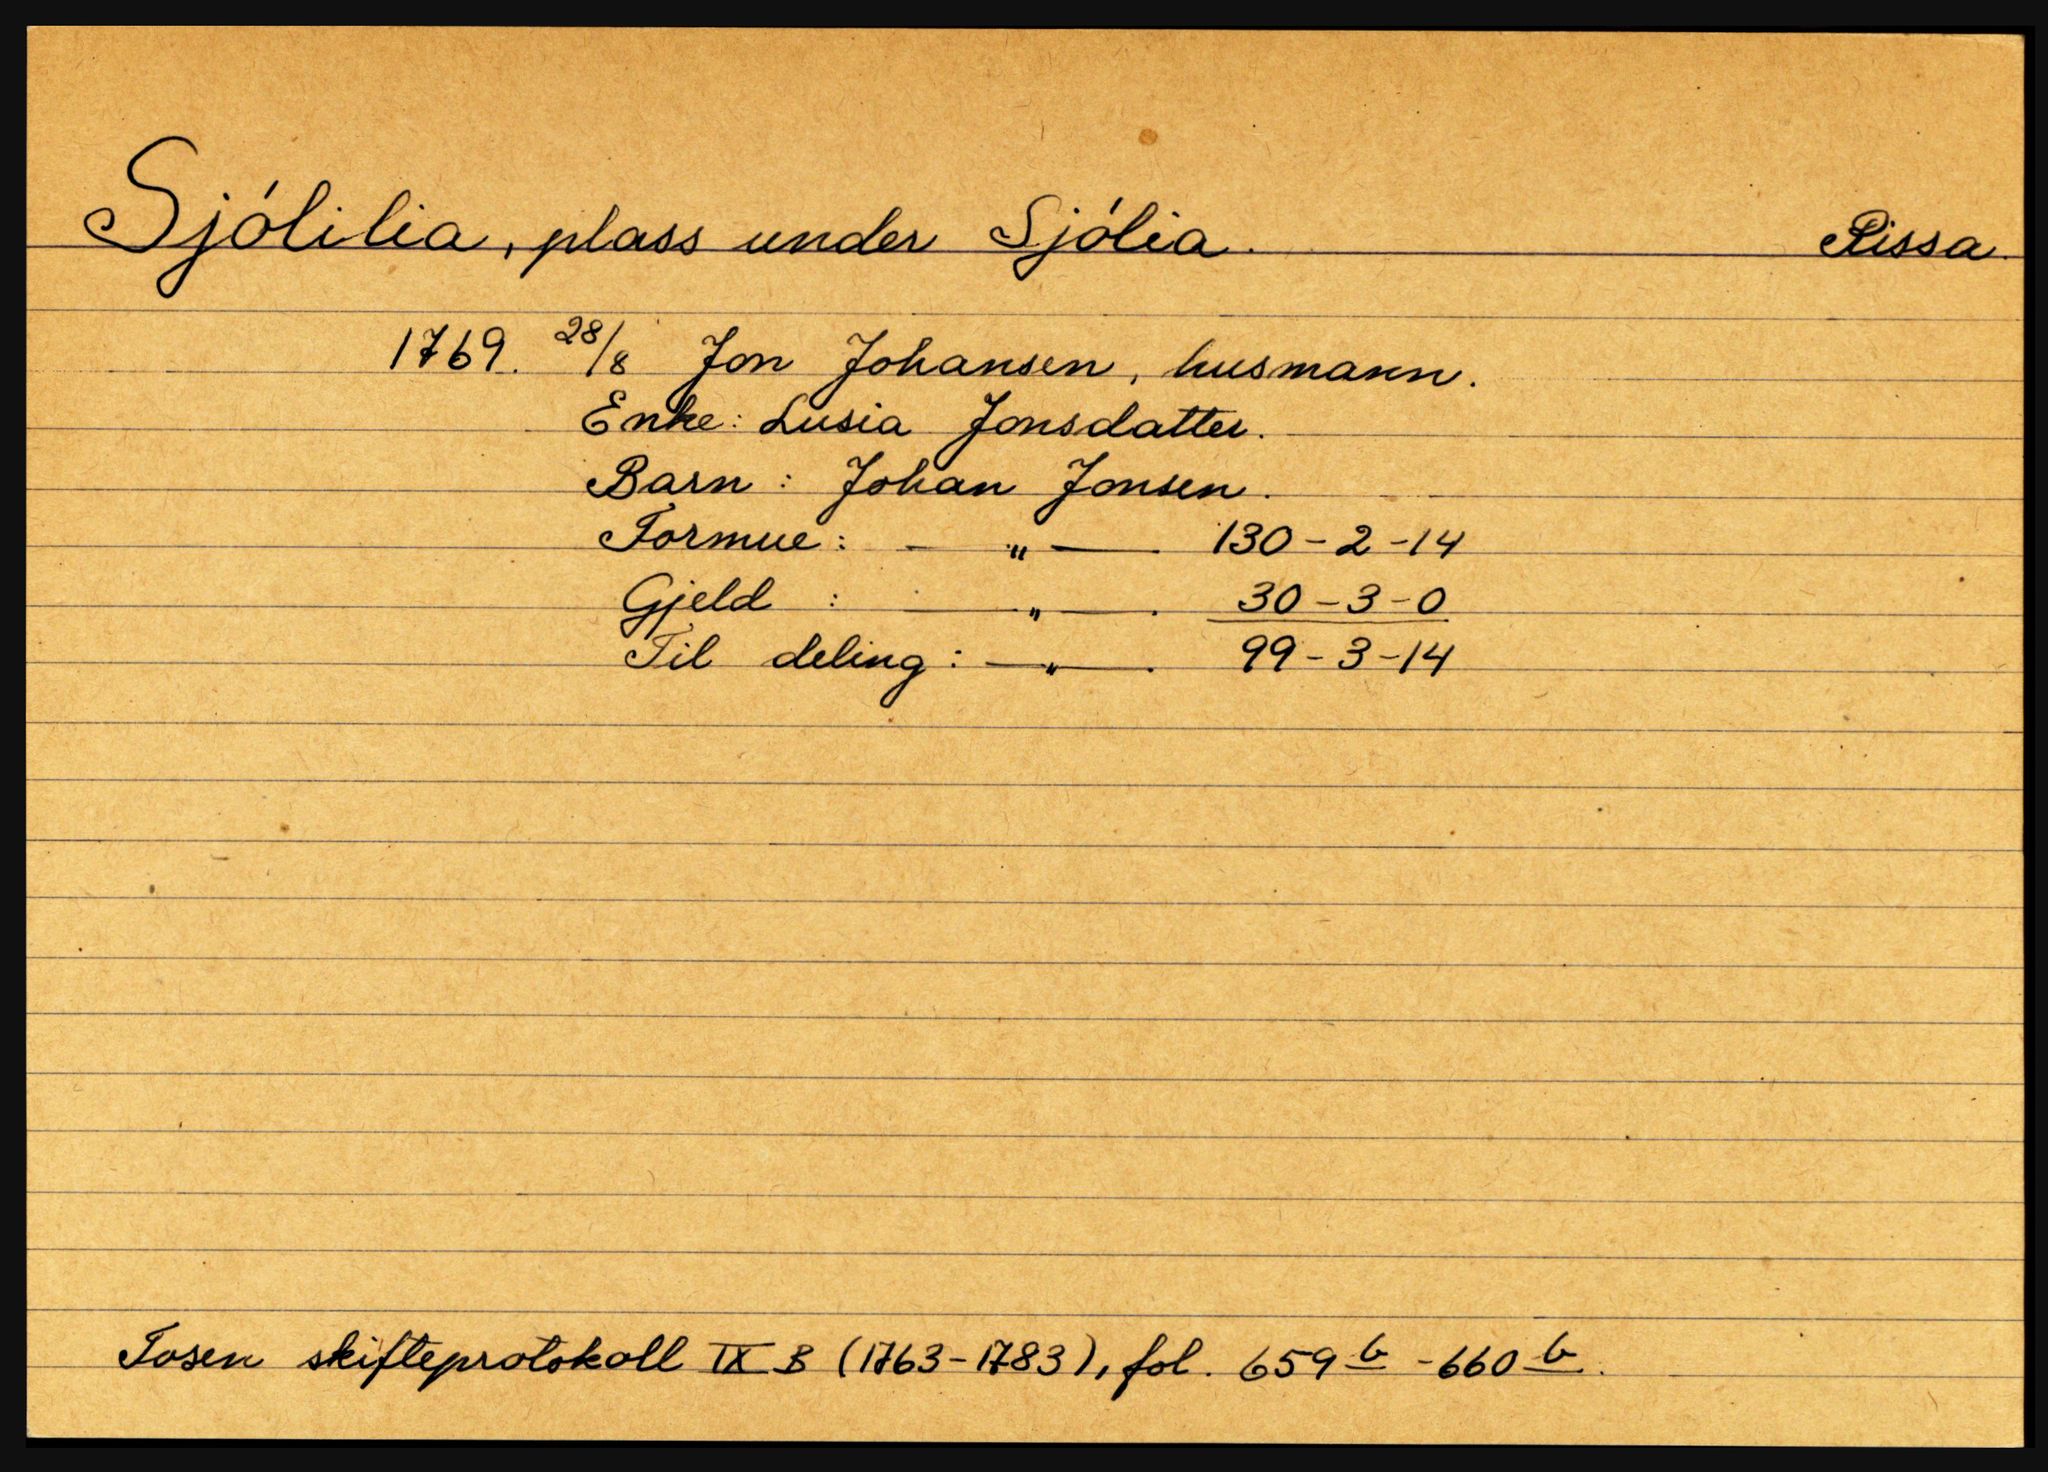 Sjólilia, plass under Sjólia. Rissa.
1769. 28/8 Jon Johansen, husmann.
Enke: Lusia Jonsdatter.
Barn: Johan Jonsen.
Formue: — " — . 130-2-14
Gjeld : — " — . 30-3-0
Til deling: — " — . 99-3-14
Fosen skifteprotokoll IX B (1763-1783), fol. 659 b - 660 b.